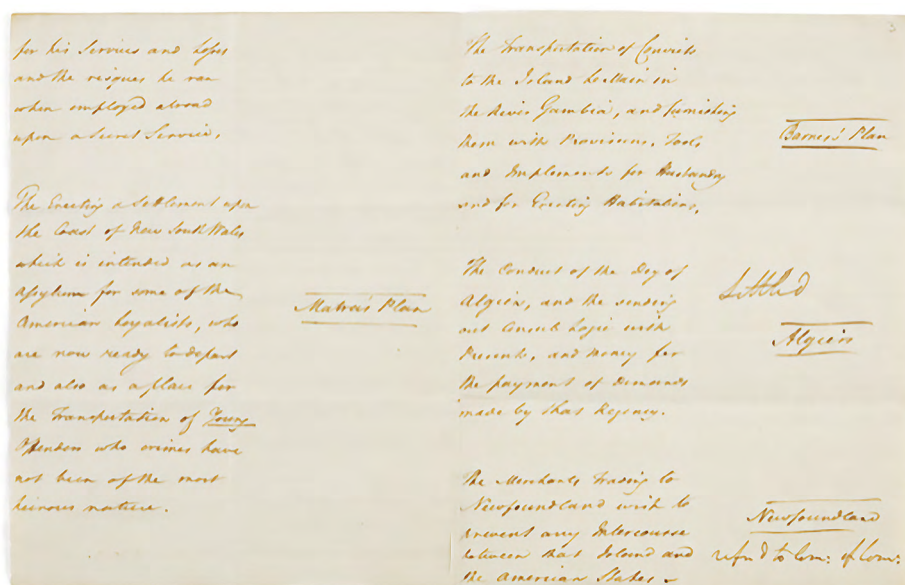 for his Services and Losses
and the risques he ran
when employed abroad
upon a Secret Service.
The Erecting a Settlement upon
the Coast of New South Wales
which is intended as an
Assylum for some of the
American Loyalists, who
are now ready to depart
and also as a place for
the Transportation of Young
Offenders who crimes have
not been of the most
heinous nature.
Matra's Plan
3
The Transportation of Convicts
to the Island Lemain in
the River Gambia, and furnishing
them with Provisions, Tools
and Implements for Husbandry
and for Erecting Habitations.
Barnes's Plan
The Conduct of the Dey of
Algiers, and the sending
out Consul Logie with
Presents, and Money for
the payment of demands
made by that Regency.
Settled
Algiers
The Merchants Trading to
Newfoundland wish to
prevent any Intercourse
between that Island and
the American States
Newfoundland
refn'd to Com: of Com: